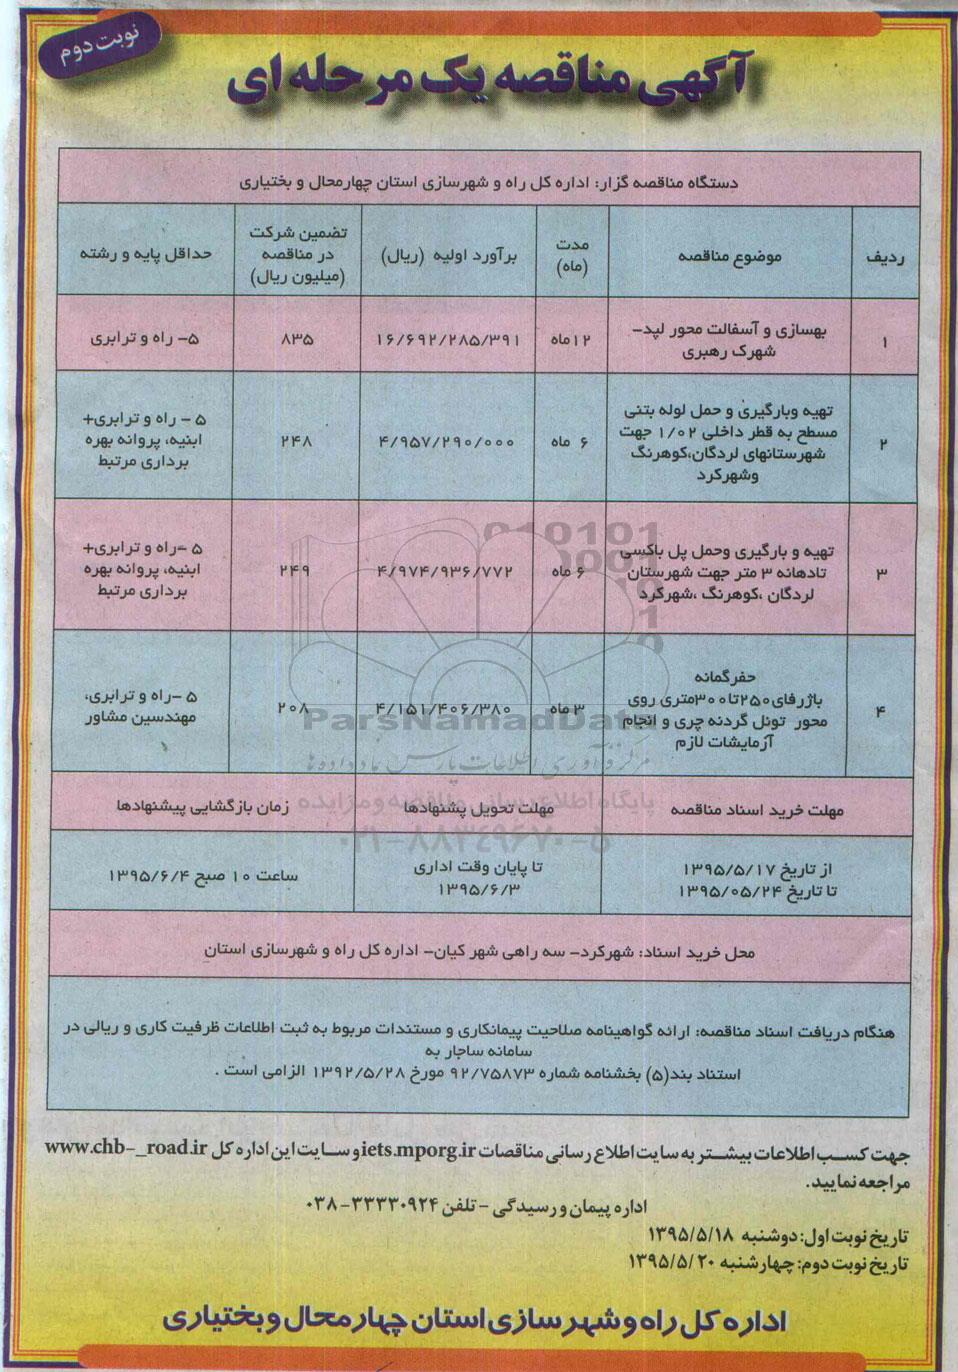 نوبت دوم
آگهی مناقصه یک مرحله ای
دستگاه مناقصه گزار: اداره کل راه و شهرسازی استان چهارمحال و بختیاری
ردیف
موضوع مناقصه
مدت
(ماه)
برآورد اولیه (ریال)
تضمین شرکت
در مناقصه
(میلیون ریال)
حداقل پایه و رشته
۱
بهسازی و آسفالت محور لپد-
شهرک رهبری
۱۲ماه
۱۶/۶۹۲/۲۸۵/۳۹۱
۸۳۵
۵- راه و ترابری
۲
تهیه وبارگیری و حمل لوله بتنی
مسطح به قطر داخلی ۱/۰۲ جهت
شهرستانهای لردگان،کوهرنگ
وشهرکرد
۶ ماه
۴/۹۵۷/۲۹۰/۰۰۰
۲۴۸
۵ - راه و ترابری+
ابنیه، پروانه بهره
برداری مرتبط
۳
تهیه و بارگیری وحمل پل باکسی
تادهانه ۳ متر جهت شهرستان
لردگان ،کوهرنگ ،شهرکرد
۶ ماه
۴/۹۷۴/۹۳۶/۷۷۲
۲۴۹
۵ -راه و ترابری+
ابنیه، پروانه بهره
برداری مرتبط
۴
حفرگمانه
باژرفای۲۵۰تا۳۰۰متری روی
محور تونل گردنه چری و انجام
آزمایشات لازم
۳ ماه
۴/۱۵۱/۴۰۶/۳۸۰
۲۰۸
۵ -راه و ترابری،
مهندسین مشاور
010101
0001
10
1
0
ParsNamadData
مرکز فرآوری اطلاعات پارس نماد داده ها
پایگاه اطلاع رسانی مناقصه و مزایده
۰۲۱-۸۸۳۴۹۶۷۰-۵
مهلت خرید اسناد مناقصه
مهلت تحویل پشنهادها
زمان بازگشایی پیشنهادها
از تاریخ ۱۳۹۵/۵/۱۷
تا تاریخ ۱۳۹۵/۰۵/۲۴
تا پایان وقت اداری
۱۳۹۵/۶/۳
ساعت ۱۰ صبح ۱۳۹۵/۶/۴
محل خرید اسناد: شهرکرد- سه راهی شهر کیان- اداره کل راه و شهرسازی استان
هنگام دریافت اسناد مناقصه: ارائه گواهینامه صلاحیت پیمانکاری و مستندات مربوط به ثبت اطلاعات ظرفیت کاری و ریالی در
سامانه ساجار به
استناد بند(۵) بخشنامه شماره ۹۲/۷۵۸۷۳ مورخ ۱۳۹۲/۵/۲۸ الزامی است .
جهت کسب اطلاعات بیشتر به سایت اطلاع رسانی مناقصات iets.mporg.ir و سایت این اداره کل www.chb-_road.ir
مراجعه نمایید.
اداره پیمان و رسیدگی - تلفن ۳۳۳۳۰۹۲۴-۰۳۸
تاریخ نوبت اول: دوشنبه ۱۳۹۵/۵/۱۸
تاریخ نوبت دوم: چهارشنبه ۱۳۹۵/۵/۲۰
اداره کل راه و شهرسازی استان چهارمحال و بختیاری